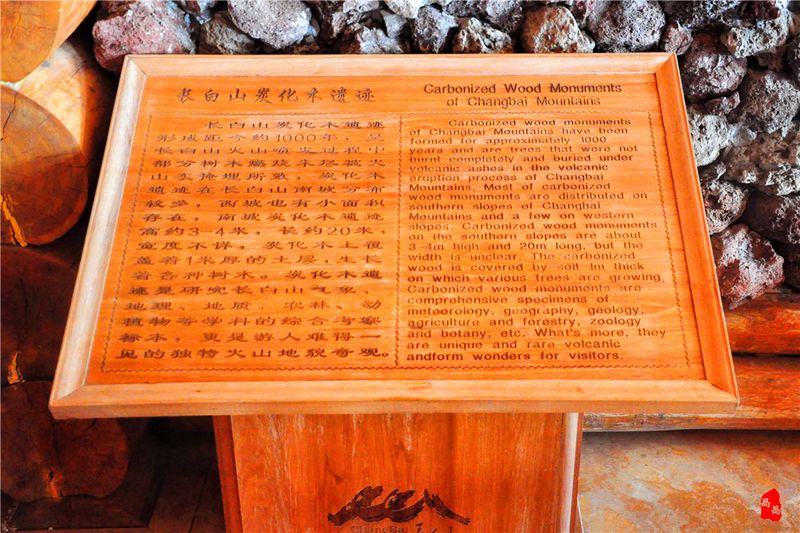 长白山炭化木遗迹
长白山炭化木遗迹
形成距今约1000年，是
长白山火山喷发过程中
部分树木燃烧未尽被火
山灰掩埋所致，炭化木
遗迹在长白山南坡分布
较多，西坡也有小面积
存在，南坡炭化木遗迹
高约3-4米，长约20米，
宽度不详。炭化木上覆
盖着1米厚的土层，生长
着各种树木。炭化木遗
迹是研究长白山气象、
地理、地质、农林、动
植物等学科的综合考察
标本，更是游人难得一
见的独特火山地貌奇观。
Carbonized Wood Monuments
of Changbai Mountains
Carbonized wood monuments
of Changbai Mountains have been
formed for approximately 1000
years and are trees that were not
burnt completely and buried under
volcanic ashes in the volcanic
eruption process of Changbai
Mountains. Most of carbonized
wood monuments are distributed on
southern slopes of Changbai
Mountains and a few on western
slopes. Carbonized wood monuments
in the southern slopes are about
3-4m high and 20m long, but the
width is unclear. The carbonized
wood is covered by soil 1m thick
on which various trees are growing.
Carbonized wood monuments are
comprehensive specimens of
meteorology, geography, geology,
agriculture and forestry, zoology
and botany, etc. What's more, they
are unique and rare volcanic
andform wonders for visitors.
ChangBai